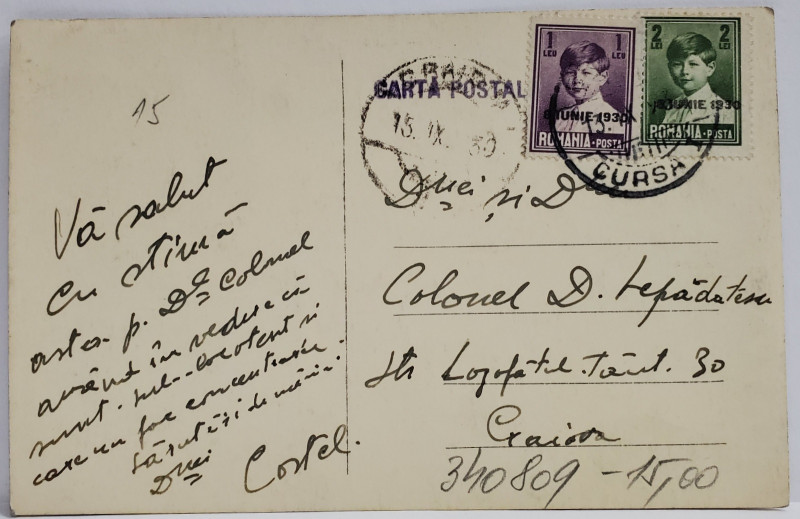 15
Vă salut
cu stimă
astea p. Dl Colonel
având în vedere că
sunt sub-locotent și
care nu fac concentrare.
Sărutări de mâini
Dnei Costel.
CARTA POSTAL
CRAIOVA
15. IX. 30
1 LEU 1 LEU
ROMANIA-POSTA
8 IUNIE 1930
2 LEI 2 LEI
ROMANIA-POSTA
8 IUNIE 1930
CURSA I
Dnei și Dlui
Colonel D. Lepădatescu
Str Logofătul Tăut. 30
Craiova
340809 - 15,00